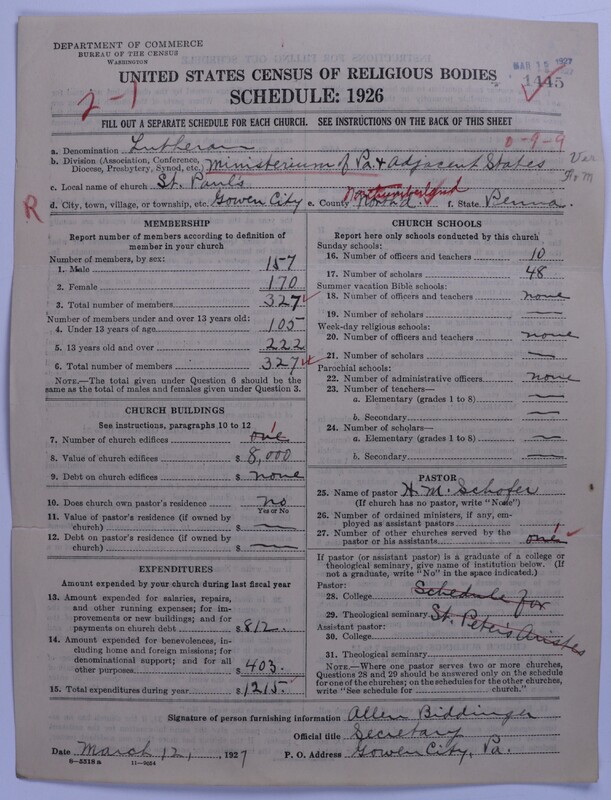 DEPARTMENT OF COMMERCE
BUREAU OF THE CENSUS
WASHINGTON
MAR 15 1927
1445
UNITED STATES CENSUS OF RELIGIOUS BODIES
SCHEDULE: 1926
2-1
FILL OUT A SEPARATE SCHEDULE FOR EACH CHURCH. SEE INSTRUCTIONS ON THE BACK OF THIS SHEET
0-9-9
a. Denomination Lutheran
b. Division (Association, Conference, Diocese, Presbytery, Synod, etc.) Ministerium of Pa. & Adjacent States
c. Local name of church St. Paul's
R
d. City, town, village, or township, etc. Gowen City e. County Northumberland f. State Penna.
MEMBERSHIP
Report number of members according to definition of
member in your church
Number of members, by sex:
1. Male 157
2. Female 170
3. Total number of members 327
Number of members under and over 13 years old:
4. Under 13 years of age 105
5. 13 years old and over 222
6. Total number of members 327
NOTE.—The total given under Question 6 should be
the same as the total of males and females given under Question 3.
CHURCH BUILDINGS
See instructions, paragraphs 10 to 12
7. Number of church edifices one 1
8. Value of church edifices $ 8,000
9. Debt on church edifices $ none
10. Does church own pastor's residence no
Yes or No
11. Value of pastor's residence (if owned by
church) $ —
12. Debt on pastor's residence (if owned by
church) $ —
EXPENDITURES
Amount expended by your church during last fiscal year
13. Amount expended for salaries, repairs,
and other running expenses; for im-
provements or new buildings; and for
payments on church debt $ 812.
14. Amount expended for benevolences, in-
cluding home and foreign missions; for
denominational support; and for all
other purposes $ 403.
15. Total expenditures during year $ 1215.
CHURCH SCHOOLS
Report here only schools conducted by this church
Sunday schools:
16. Number of officers and teachers 10
17. Number of scholars 48
Summer vacation Bible schools:
18. Number of officers and teachers none
19. Number of scholars —
Week-day religious schools:
20. Number of officers and teachers none
21. Number of scholars —
Parochial schools:
22. Number of administrative officers none
23. Number of teachers—
a. Elementary (grades 1 to 8) —
b. Secondary —
24. Number of scholars—
a. Elementary (grades 1 to 8) —
b. Secondary —
PASTOR
25. Name of pastor H. M. Schofer
(If church has no pastor, write "None")
26. Number of ordained ministers, if any, em-
ployed as assistant pastors —
27. Number of other churches served by the
pastor or his assistants one 1
If pastor (or assistant pastor) is a graduate of a college or
theological seminary, give name of institution below. (If
not a graduate, write "No" in the space indicated.)
Pastor:
28. College Schedule for
29. Theological seminary St. Peter's Aristes
Assistant pastor:
30. College
31. Theological seminary
NOTE.—Where one pastor serves two or more churches,
Questions 28 and 29 should be answered only on the schedule
for one of the churches; on the schedules for the other churches,
write "See schedule for ______ church."
Signature of person furnishing information Allen Biddinger
Official title Secretary
Date March 12, 1927 P. O. Address Gowen City, Pa.
8-5518a 11-9054